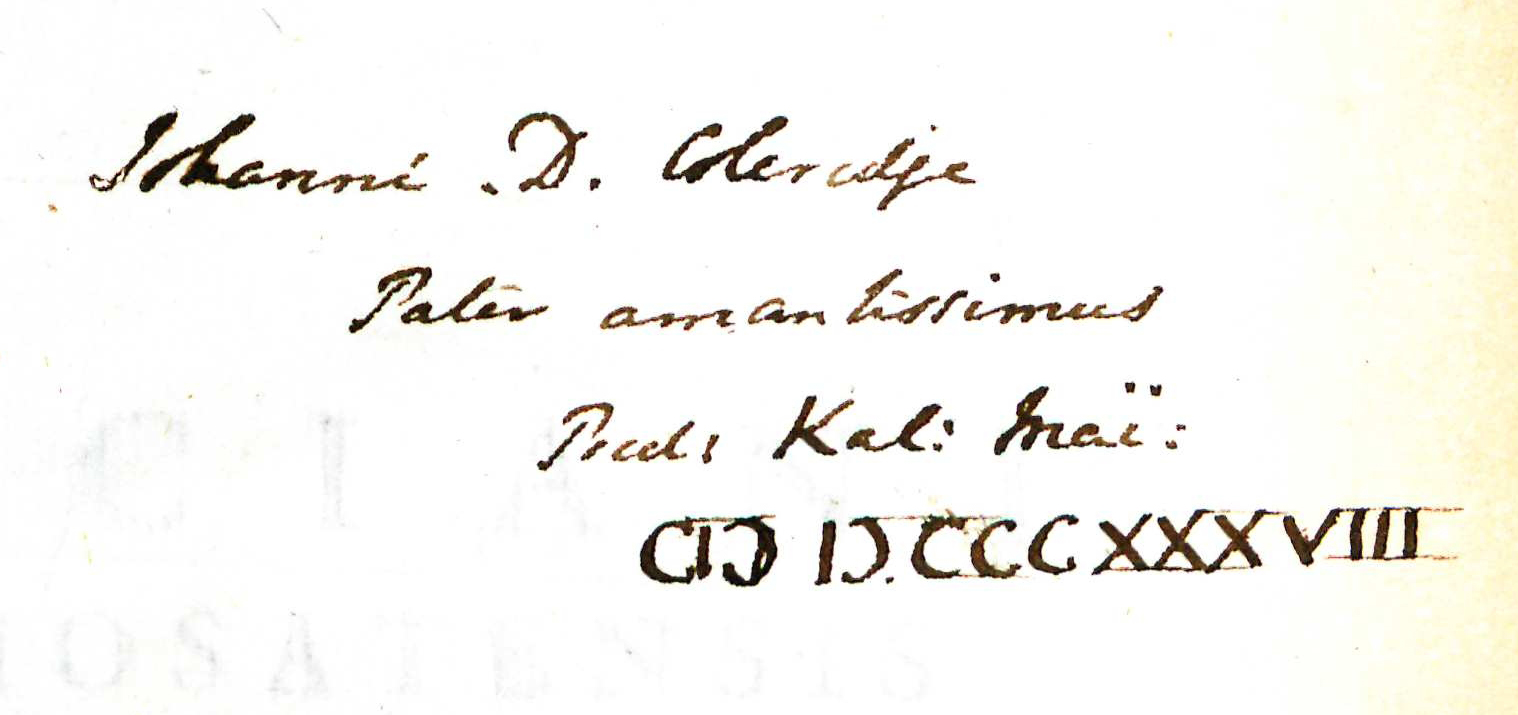 Johanni .D. Coleridge
Pater amantissimus
Prid: Kal: Maii:
CIↃ IↃ.CCCXXXVIII